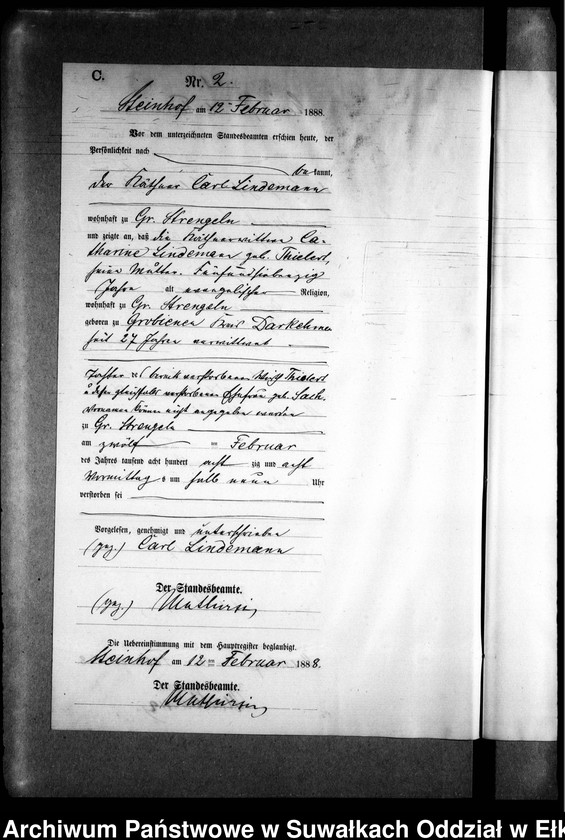 C.
Nr. 2.
Steinhof am 12ten Februar 1888.
Vor dem unterzeichneten Standesbeamten erschien heute, der
Persönlichkeit nach
be kannt,
der Käthner Carl Lindemann
wohnhaft zu Gr. Strengeln
und zeigte an, daß die Käthnerwittwe Ca-
tharine Lindemann geb. Thielert,
seine Mutter, Fünfundsiebenzig
Jahre alt evangelischer Religion,
wohnhaft zu Gr. Strengeln
geboren zu Grobienen Kreis Darkehmen
seit 27 Jahren verwittwet
Tochter des verstorbenen Thielert
u dessen gleichfalls verstorbenen Ehefrau geb.
Vornamen können nicht angegeben werden
zu Gr. Strengeln
am zwölf ten Februar
des Jahres tausend acht hundert acht zig und acht
Vormittags um halb neun Uhr
verstorben sei
Vorgelesen, genehmigt und unterschrieben
(gez.) Carl Lindemann
Der Standesbeamte.
(gez.)
Die Uebereinstimmung mit dem Hauptregister beglaubigt.
Steinhof am 12ten Februar 1888.
Der Standesbeamte.
Archiwum Państwowe w Suwałkach Oddział w Ełk